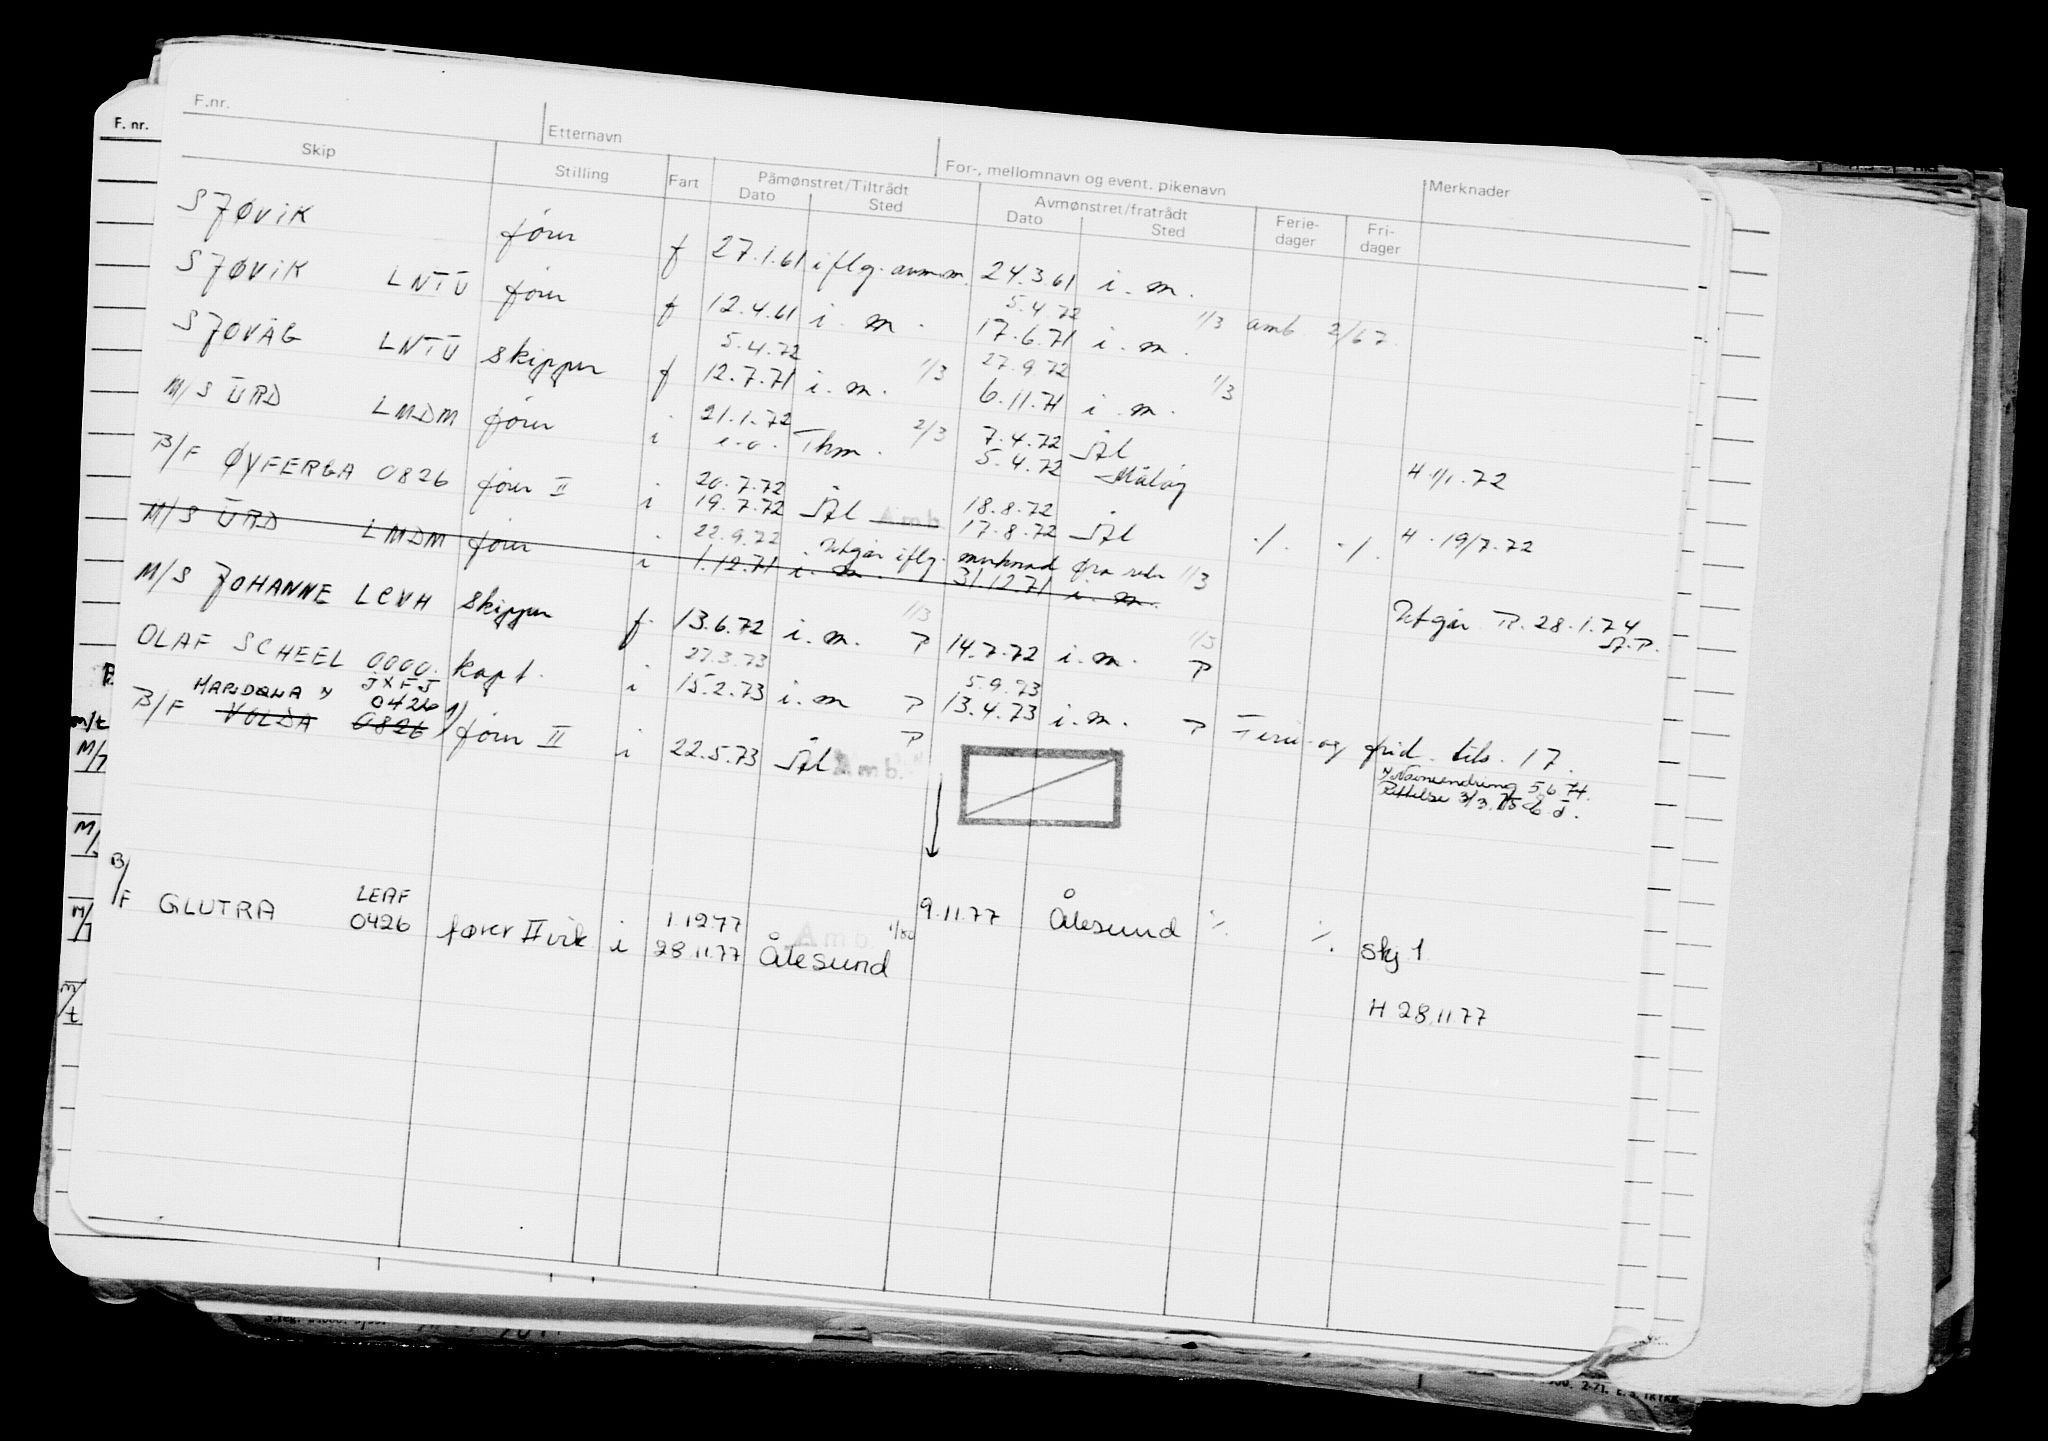 F. nr.
F.nr.
Etternavn
For-, mellomnavn og event. pikenavn
Skip
Stilling
Fart
Påmønstret/Tiltrådt
Dato Sted
Avmønstret/fratrådt
Dato Sted
Ferie-
dager
Fri-
dager
Merknader
SJØVIK fører f 27.1.61 iflg. avmm. 24.3.61 i.m.
5.4.72
SJØVIK LNTU fører f 12.4.61 i.m. 17.6.71 i.m. 1/3 amb. 2/67.
5.4.72 27.9.72
SJØVÅG LNTU skipper f 12.7.71 i.m. 1/3 6.11.71 i.m. 1/3
21.1.72 7.4.72 Ål
M/S URD LMDM fører i i.o. Thm. 2/3 5.4.72 Måløy H 11/1.72
20.7.72 18.8.72
B/F ØYFERGA 0826 fører II i 19.7.72 Ål Amb 17.8.72 Ål ./. ./. H. 19/7.72
22.9.72 Utgår iflg. merknad fra rede 1/3
M/S URD LMDM fører i 1.12.71 i.m. 31.12.71 i.m. Utgår R. 28.1.74
M/S JOHANNE LCVH skipper f. 13.6.72 i.m. 1/3 P 14.7.72 i.m. P
27.3.73 5.9.73
OLAF SCHEEL 0000. kapt. i 15.2.73 i.m P 13.4.73 i.m. P Ferie- og frid. tils. 17.
JXFJ
HARDANA 0426 1)
B/F VOLDA 0826 fører II i 22.5.73 Ål Amb. P
Navneendring 5.6.74.
Rettelse 3/3.75
B/F GLUTRA LEAF
0426 fører II vik i 1.12.77
28.11.77 Ålesund Amb 1/80 9.11.77 Ålesund ./. ./. Skj 1
H 28.11.77